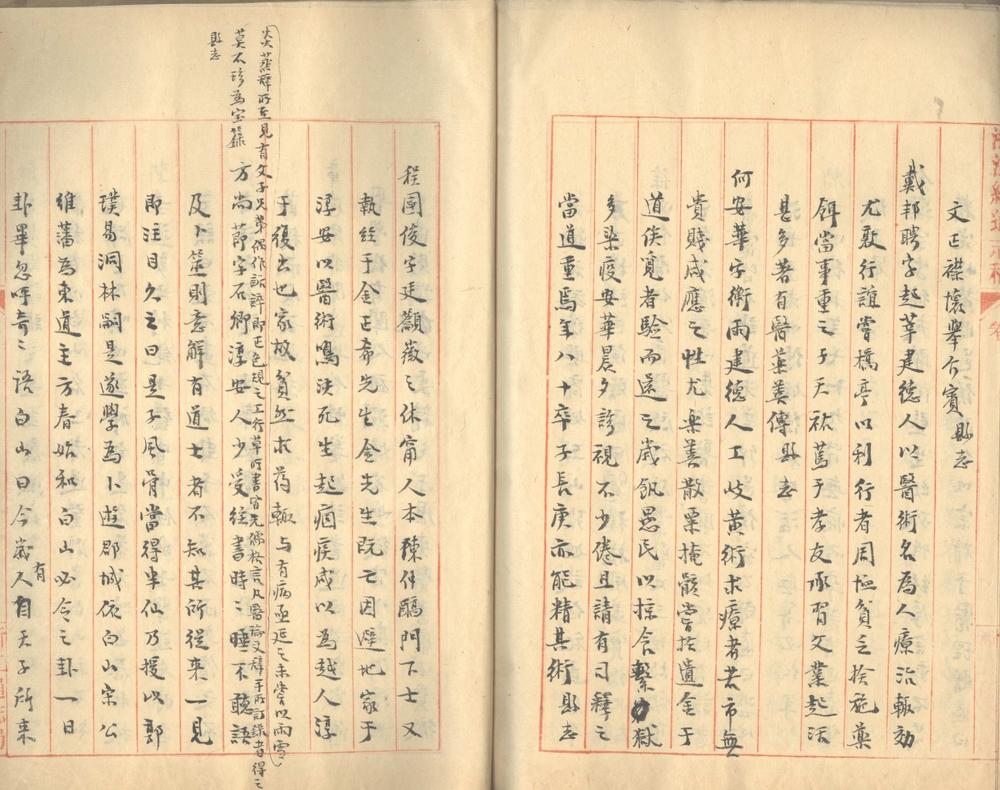 文正襟懷舉介賓縣志
戴邦聘字起莘建德人以醫術名為人療治輒効
尤敦行誼嘗搆亭以利行者周恤貧乏捨施藥
餌當事重之子天祐篤于孝友承習父業起活
甚多著有醫藥善傳縣志
何安華字衡雨建德人工岐黃術求療者若市無
貴賤咸應之性尤樂善散粟掩骼嘗拾遺金于
道俟覓者驗而還之歲飢愚民以掠食繫獄
多染疫安華晨夕診視不少倦且請有司釋之
當道重焉年八十卒子長庚亦能精其術縣志
程國俊字廷顯徽之休甯人本陳仲醕門下士又
執經于金正希先生金先生既亡因避地家于
淳安以醫術鳴決死生起痼疾咸以為越人淳
于復出也家故貧然求葯輒與有病亟延之未嘗以雨雪
炎蒸辭所至見有父子兄弟俗作詬誶即正色規之工行草所書皆先儒格言凡醫論及拜于所言錄者得之
莫不珍為宝籙縣志
方尚節字石卿淳安人少受經書時時睡不聽語
及卜筮則意解有道士者不知其所從來一見
即注目久之曰是子風骨當得半仙乃授以郭
璞易洞林嗣是遂學為卜遊郡城依白山宗公
維藩為東道主方春始和白山必令之卦一日
卦畢忽呼奇奇語白山曰今歲有人自天子所來